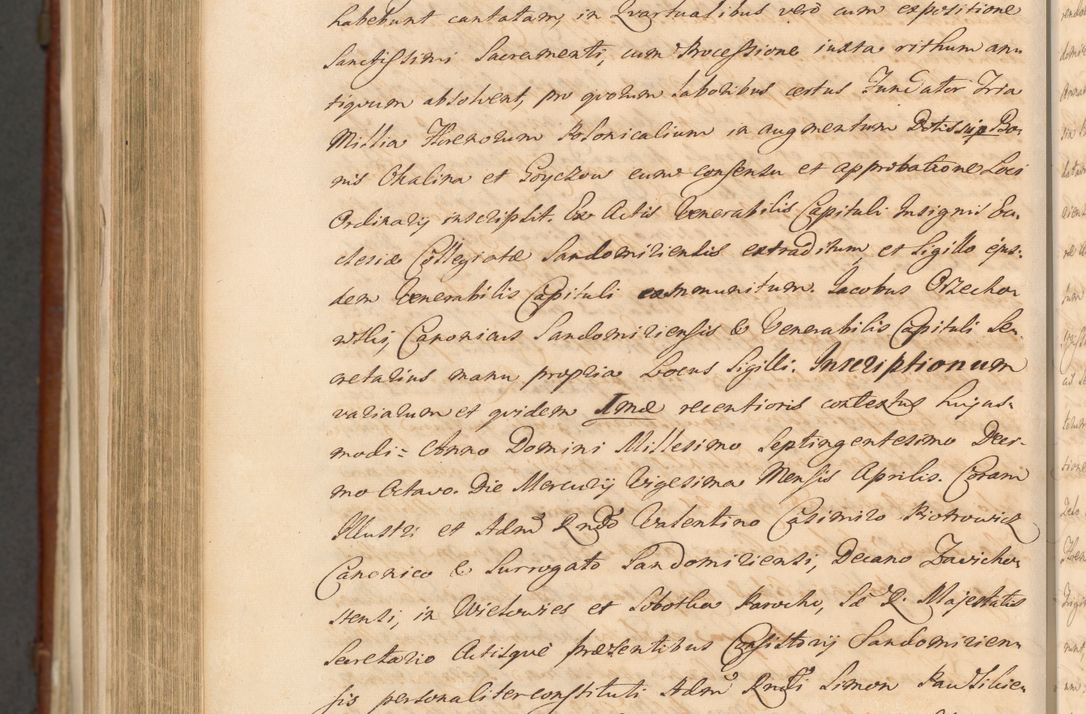 habebunt cantatam, in Quartualibus verò cum expositione
Sanctissimi Sacramenti, cum Processione iuxta rithum an-
tiquum absolvent, pro quorum laboribus certus Fundator Tria
Millia Florenorum Polonicalium in augmentum Dotis sup Bo-
nis Chalina et Goyckow cum consensu et approbatione Loci
Ordinarij inscripsit. Ex Actis Venerabilis Capituli Insignis Ec-
clesiæ Collegiatæ Sandomiriensis extraditum, et Sigillo ejus-
dem Venerabilis Capituli communitum. Jacobus Orzecho-
wski, Canonicus Sandomiriensis & Venerabilis Capituli Se-
cretarius manu propria Locus Sigilli. Inscriptionum
variarum et quidem Imæ recentioris contextus hujus-
modi: Anno Domini Millesimo Septingentesimo Deci-
mo Octavo. Die Mercurij Vigesima Mensis Aprilis. Coram
Illustri et Admo Rndo Valentino Casimiro Piotrowicz
Canonico & Surrogato Sandomiriensi, Decano Zavicho-
stensi, in Wielowies et Sobotka Parocho, Sæ R. Majestatis
Secretario Actisque præsentibus Consistorij Sandomirien-
sis personaliter constituti Admo Rndi Simon Pausilicie-